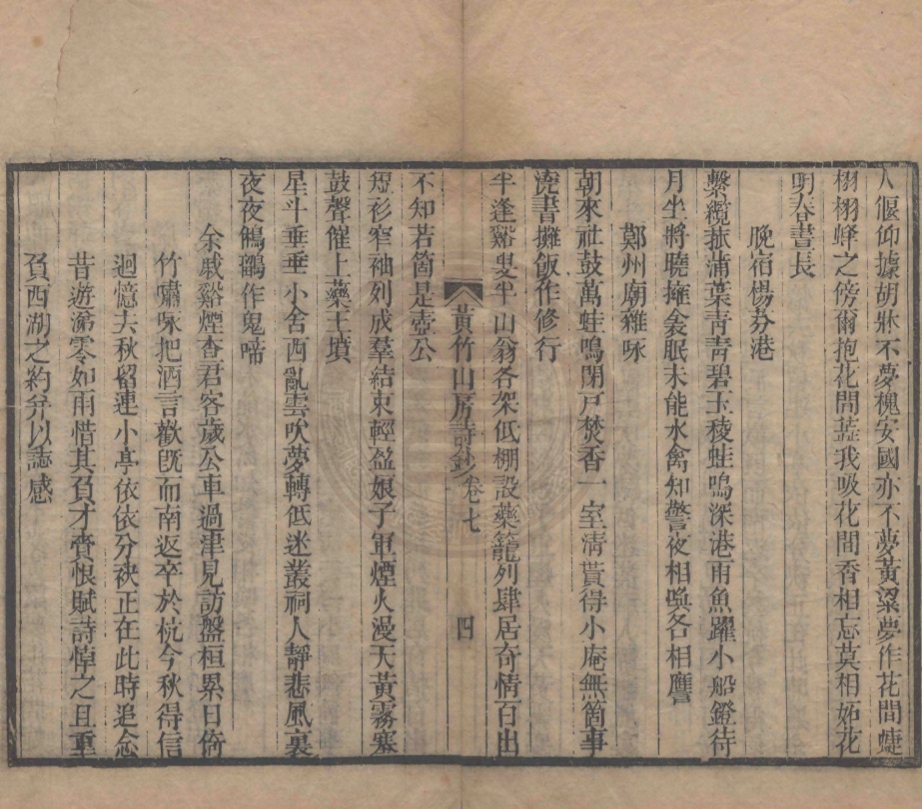 人偃仰據胡牀不夢槐安國亦不夢黃粱夢作花間蜨
栩栩蜂之傍爾抱花問蕋我吸花間香相忘莫相妬花
明春晝長
晚宿楊芬港
繫纜菰蒲葉青青碧玉稜蛙鳴深港雨魚躍小船鐙待
月坐將曉擁衾眠未能水禽知警夜相喚各相譍
鄭州廟雜咏
朝來社鼓萬蛙鳴閉戸焚香一室清貰得小庵無箇事
澆書攤飯作修行
半逢谿叟半山翁各架低棚設藥籠列肆居奇情百出
不知若箇是壺公
黃竹山房詩鈔卷七
四
短衫窄袖列成羣結束輕盈娘子軍煙火漫天黃霧塞
鼓聲催上藥王墳
星斗垂垂小舍西亂雲吹夢轉低迷叢祠人靜悲風裏
夜夜鵂鶹作鬼啼
余戚谿煙查君客歲公車過津見訪盤桓累日倚
竹嘯咏把酒言歡旣而南返卒於杭今秋得信
迴憶去秋留連小亭依依分袂正在此時追念
昔遊涕零如雨惜其負才賫恨賦詩悼之且重
負西湖之約弁以誌感